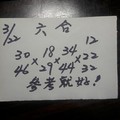 3/22 六合
30 18 34 12
46 × 29 × 44 × 22
32
參考就好!